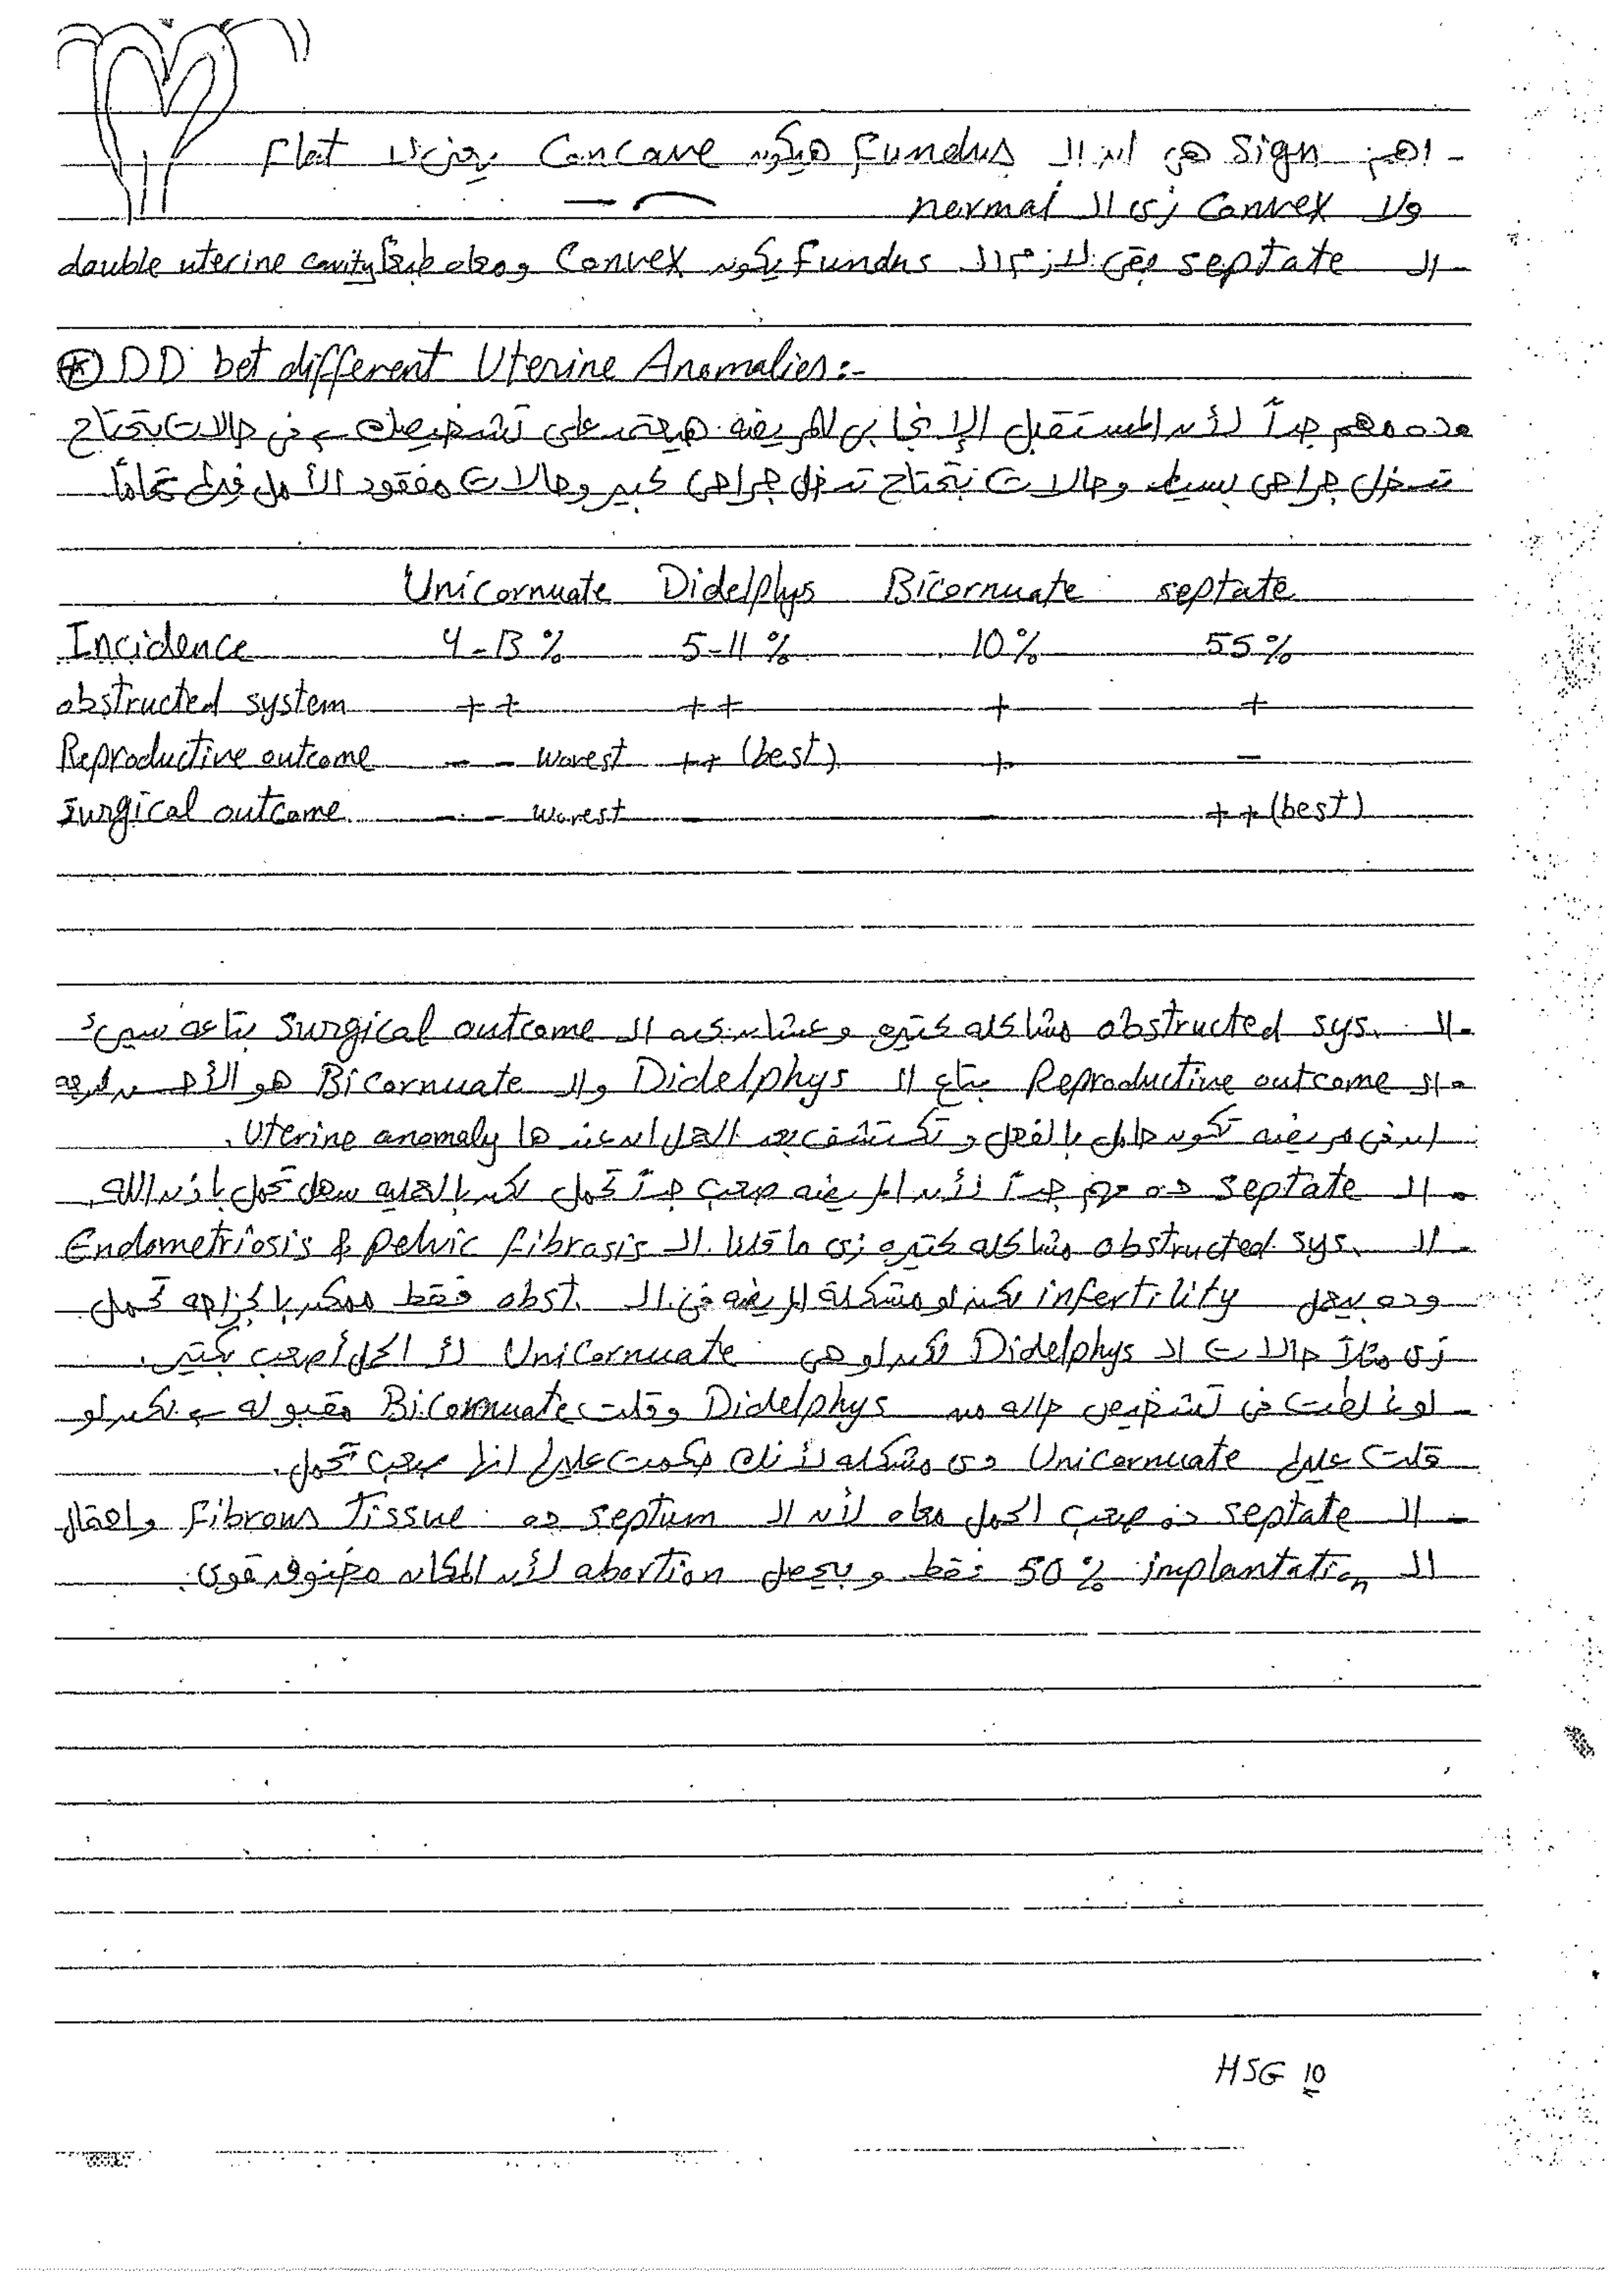 - اهم sign هي ان ال Fundus هيكون Concave يعني لا Flat
ولا Convex زى ال normal
- ال septate بقى لازم ال Fundus يكون Convex ومعاه طبعاً double uterine cavity
* DD bet different Uterine Anomalies:-
وده مهم جداً لأن المستقبل الإنجابى للمريضه هيعتمد على تشخيصك → فى حالات تحتاج
تدخل جراحى بسيط وحالات تحتاج تدخل جراحى كبير وحالات مفقود الأمل فيها تماماً
Unicornuate Didelphys Bicornuate septate
Incidence 4-13% 5-11% 10% 55%
obstructed system ++ ++ + +
Reproductive outcome -- worest ++ (best) + -
surgical outcome -- worest - - ++ (best)
- ال obstructed sys. مشاكله كتيره وعشان كده ال surgical outcome بتاعه سيئ
- ال Reproductive outcome بتاع ال Didelphys وال Bicornuate هو الأحسن لدرجة
ان فى مريضه تكون حامل بالفعل وتكتشف بعد الحمل ان عندها Uterine anomaly.
- ال septate ده مهم جداً لأن المريضه صعب جداً تحمل لكن بالعمليه سهل تحمل باذن الله.
- ال obstructed sys. مشاكله كتيره زى ما قلنا ال Endometriosis & pelvic fibrosis
وده بيعمل infertility لكن لو مشكلة المريضه فى ال obst. فقط ممكن بالجراحه تحمل
زى مثلاً حالات ال Didelphys لكن لو هى Unicornuate لأ الحل أصعب بكتير.
- لو غلطت فى تشخيص حاله من Didelphys وقلت Bicornuate مقبوله → لكن لو
قلت عليها Unicornuate دى مشكله لأنك حكمت عليها انها صعب تحمل.
- ال septate ده صعب الحمل معاه لأن ال septum ده Fibrous Tissue واحتمال
ال implantation 50% فقط وبيحصل abortion لأن المكان مخنوق قوى.
HSG 10